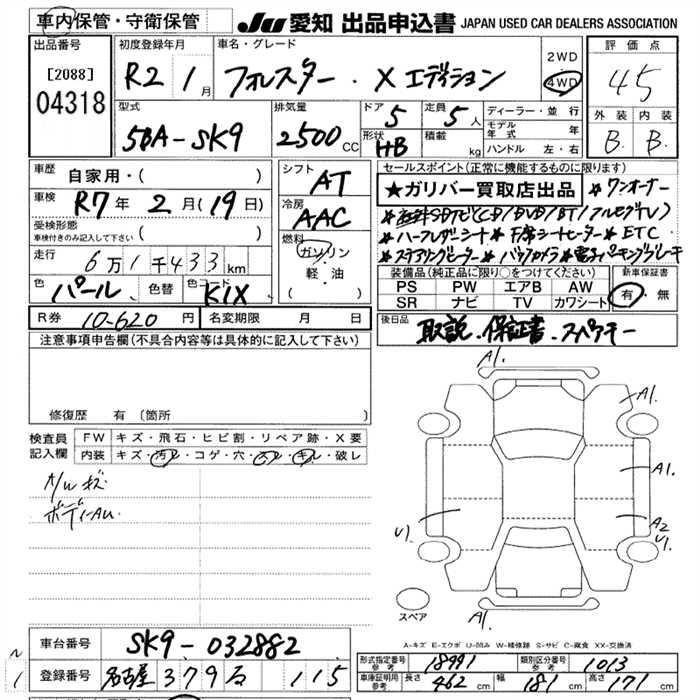 車内保管・守衛保管
JU 愛知 出品申込書 JAPAN USED CAR DEALERS ASSOCIATION
出品番号
[2088]
04318
初度登録年月
R2 1月
車名・グレード
フォレスター・X エディション
2WD
4WD
評価点
4.5
外装 内装
B. B.
型式
5BA-SK9
排気量
2500 CC
ドア
5
定員
5人
形状
HB
積載
kg
ディーラー・並行
モデル年式 年
ハンドル 左・右
車歴
自家用・( )
車検
R7年 2月(19日)
受検形態
車検付きのみ記入して下さい
( )
走行
6万1千433km
色
パール
色替
色コード
K1X
シフト
AT
冷房
AAC
燃料
ガソリン
軽・油
R券
10-620円
名変期限 月 日
セールスポイント(正常に機能するものに限ります)
★ガリバー買取店出品
★ワンオーナー
(CD/DVD/BT/フルセグTV)
★ハーフレザーシート ★ETC
★ステアリングヒーター ★バックカメラ ★電子パーキングブレーキ
装備品(純正品に限り○をつけてください)
PS PW エアB AW
SR ナビ TV カワシート
新車保証書
有・無
後日品
取説・保証書・スペアキー
注意事項申告欄(不具合内容等は具体的に記入して下さい)
修復歴 有 (箇所 )
検査員記入欄
FW キズ・飛石・ヒビ割・リペア跡・X要
内装 キズ・汚レ・コゲ・穴・スレ・キレ・破レ
A/Wキズ
A1.
A1.
A1.
A2
U1.
U1
A1.
スペア
A-キズ E-エクボ U-凹み W-補修跡 S-サビ C-腐食 XX-交換済
車台番号
SK9-032882
登録番号
名古屋 379 115
形式指定番号 参考
18991
類別区分番号 参考
1013
車庫証明用 参考
長さ 462cm 幅 181cm 高さ 171cm